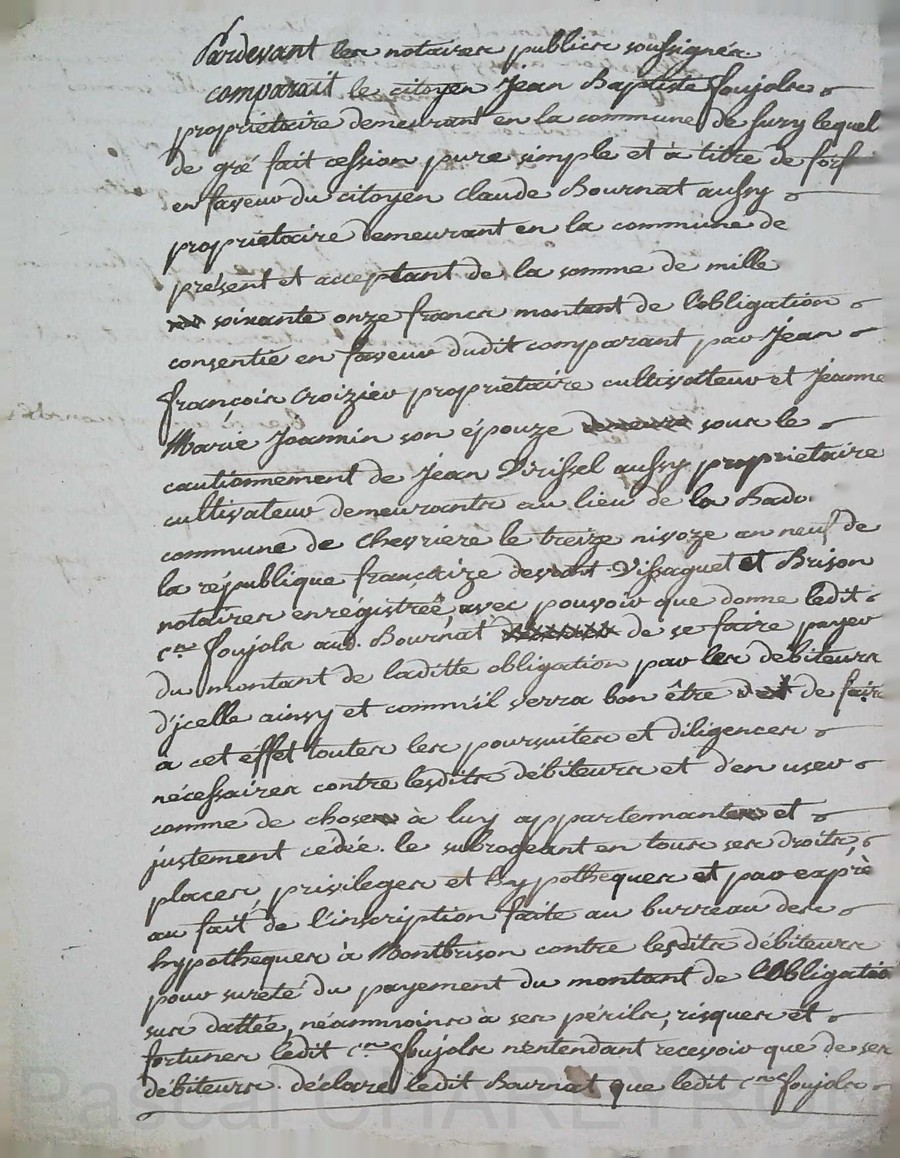 Pardevant les notaires publics soussignés
comparait le citoyen Jean Baptiste Foujols
propriétaire demeurant en la commune de Sury lequel
de gré fait cession pure simple et à titre de forf
en faveur du citoyen Claude Bournat aussy
propriétaire demeurant en la commune de
présent et acceptant de la somme de mille
soixante onze francs montant de l'obligation
consentie en faveur dudit comparant par Jean
François Croizier propriétaire cultivatteur et Jeanne
Marie Joannin son épouze demeura sous le
cautionnement de Jean Virissel aussy propriétaire
cultivateur demeurants au lieu de la Bado
commune de Chevrière le treize nivoze an neuf de
la république françaize devant Vissaguet et Brison
notaires enrégistréé, avec pouvoir que donne ledit
cen Foujols aud. Bournat de se faire payer
du montant de laditte obligation par les débiteurs
d'jcelle ainsy et comm'il verra bon être et de faire
a cet effet toutes les poursuites et diligences
nécessaires contre lesdits débiteurs et d'en user
comme de chose à luy appartennant et
justement cédée. le subrogeant en tous ses droits,
places, privileges et hypotheques et par exprès
au fait de l'inscription faite au burreau des
hypotheques à Montbrison contre lesdits débiteurs
pour sureté du payement du montant de l'obligatio
sus dattée, néammoins à ses périls, risques et
fortunes ledit cen Foujols n'entendant recevoir que de ses
débiteurs. déclare ledit Bournat que ledit cen Foujols
Pascal CHAREYRON